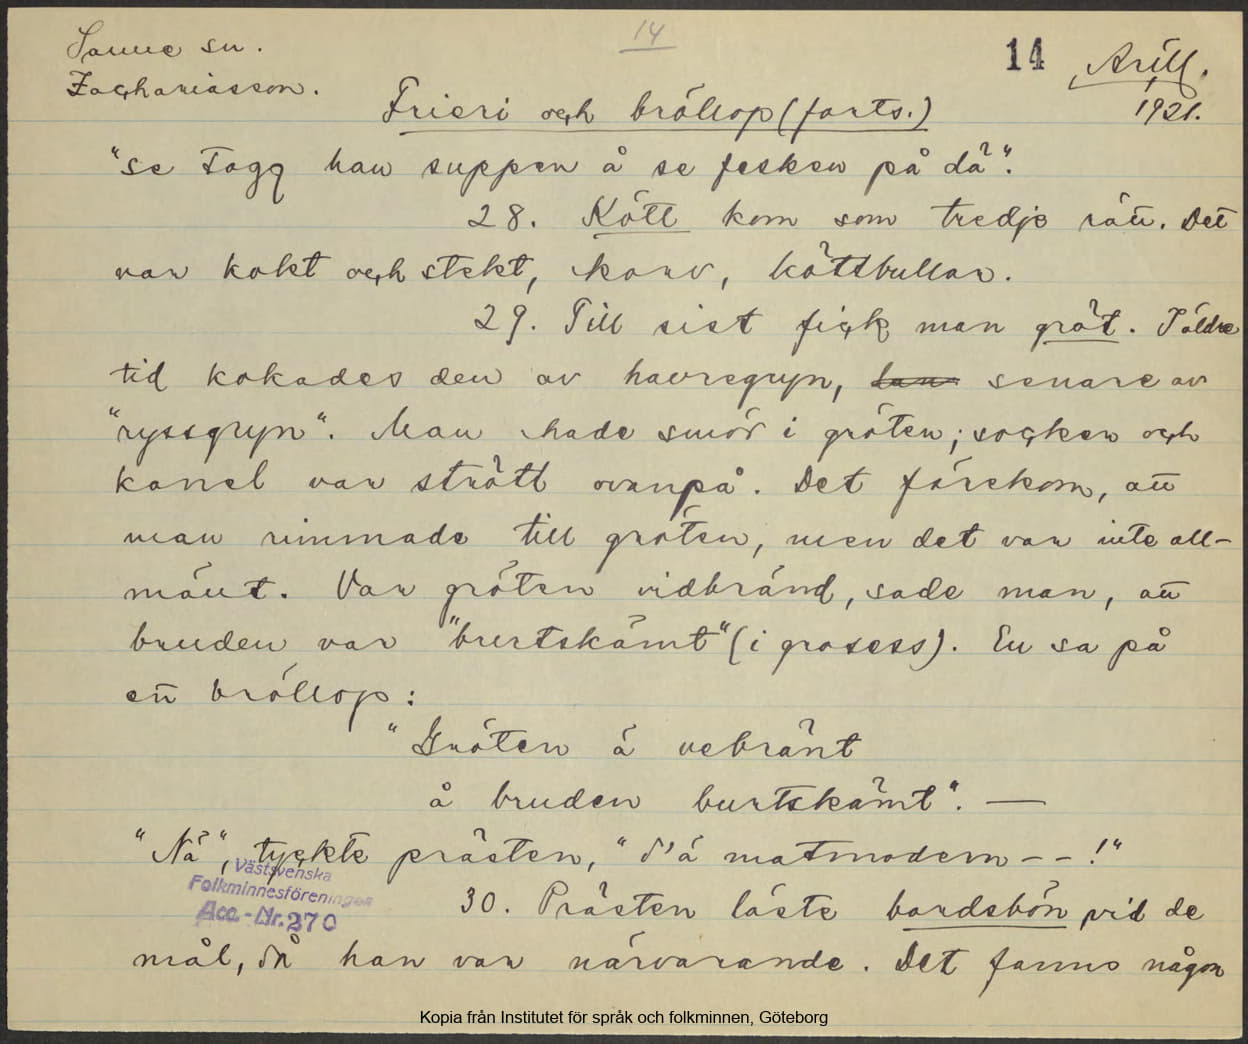 14
Sanne sn.
14
Arill.
Zachariasson.
1921.
Frieri och bröllop (forts.)
"se Fogg han suppen å se fesken på dä".
28. Kött kom som tredje rätt. Det
var kokt och stekt, korv, köttbullar.
29. Till sist fick man gröt. I äldre
tid kokades den av havregryn, senare av
"ryssgryn". Man hade smör i gröten; socker och
kanel var strött ovanpå. Det förekom, att
man rimmade till gröten, men det var inte all-
mänt. Var gröten vidbränd, sade man, att
bruden var "burtskämt" (i grosess). En sa på
ett bröllop:
"Gröten ä vebränt
å bruden burtskämt". —
"Nä", tyckte prästen, "d'ä matmodern - - !"
Västsvenska
Folkminnesföreningen
Acc.-Nr. 270
30. Prästen läste bordsbön vid de
mål, då han var närvarande. Det fanns någon
Kopia från Institutet för språk och folkminnen, Göteborg